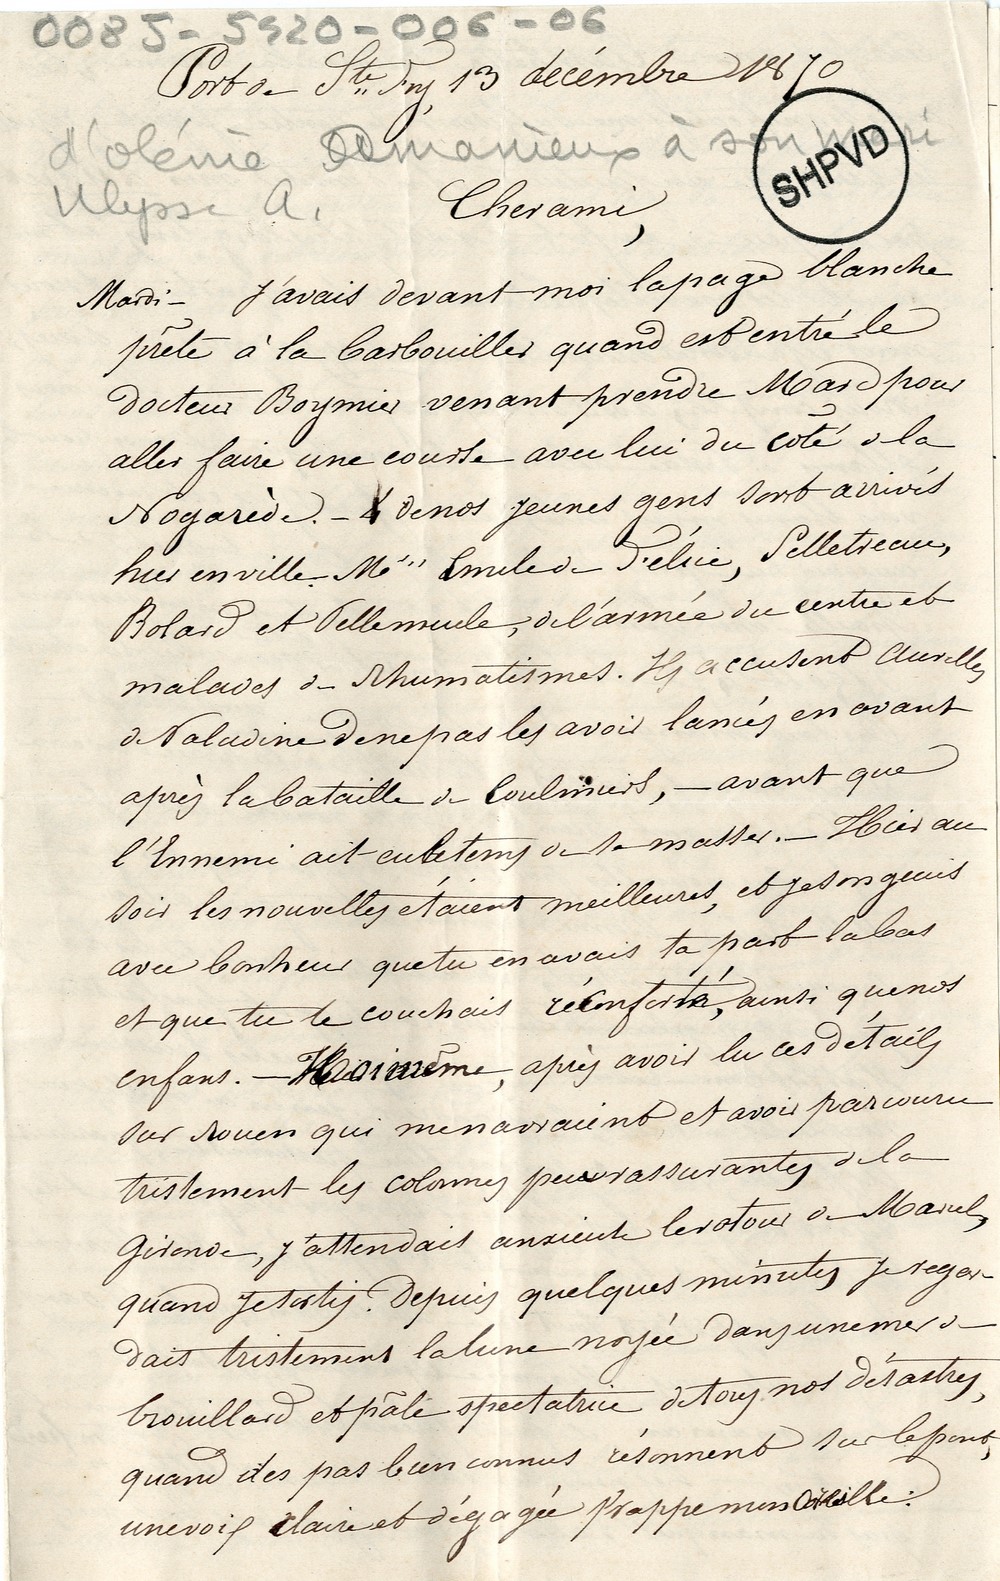 0085-5920-006-06
Port de Ste Foy, 13 décembre 1870
d'olénie à son mari
Ulysse A.
SHPVD
Cher ami,
Mardi - J'avais devant moi la page blanche
prête à la barbouiller quand est entré le
docteur Boymier venant prendre Marc pour
aller faire une course avec lui du côté de la
Nogarède. - 4 de nos jeunes gens sont arrivés
hier en ville. Mrs Emile de Félice, Pelletreau,
Bolard et , de l'armée du centre et
malades de Rhumatismes. Ils accusent Aurelles
de Paladine de ne pas les avoir lancés en avant
après la bataille de Coulmiers, - avant que
l'Ennemi ait eu le temps de se masser. - Hier au
soir les nouvelles étaient meilleures, et je songeais
avec bonheur que tu en avais ta part la bas
et que tu te couchais réconforté, ainsi que nos
enfans. - Moi même, après avoir lu ces détails
sur Rouen qui me navraient et avoir parcouru
tristement les colonnes peu rassurantes de la
Gironde, j'attendais anxieuse le retour de Marcel,
quand je sortis. Depuis quelques minutes je regar-
dais tristement la lune noyée dans une mer de
brouillard et pâle spectatrice de tous nos désastres,
quand des pas bien connus résonnent sur le pont,
une voix claire et dégagée frappe mon oreille :